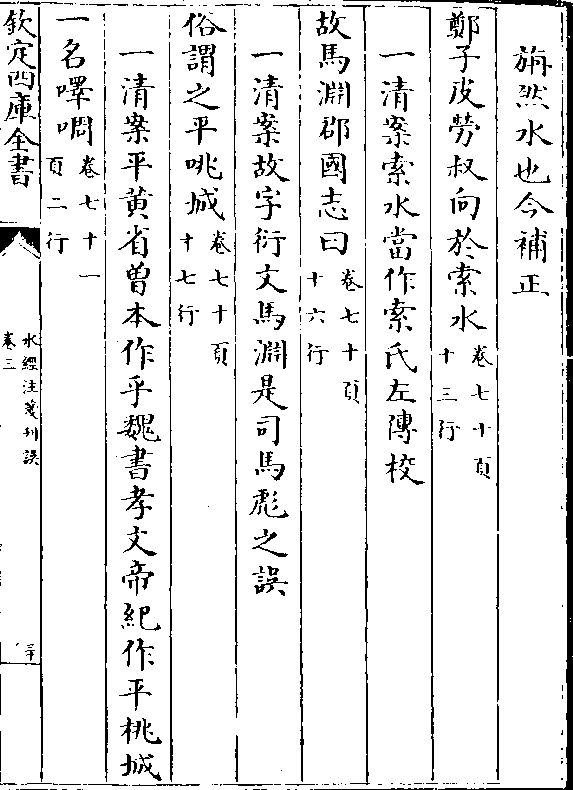 旃然水也今補正
鄭子皮勞叔向於索水卷七十頁十三行
一清案索水當作索氏左傳校
故馬淵郡國志曰卷七十頁十六行
一清案故字衍文馬淵是司馬彪之誤
俗謂之平咷城卷七十頁十七行
一清案平黄省曽本作乎魏書孝文帝紀作平桃城
一名嘽啁卷七十一頁二行
欽定四庫全書
水經注箋刊誤
卷三
三十